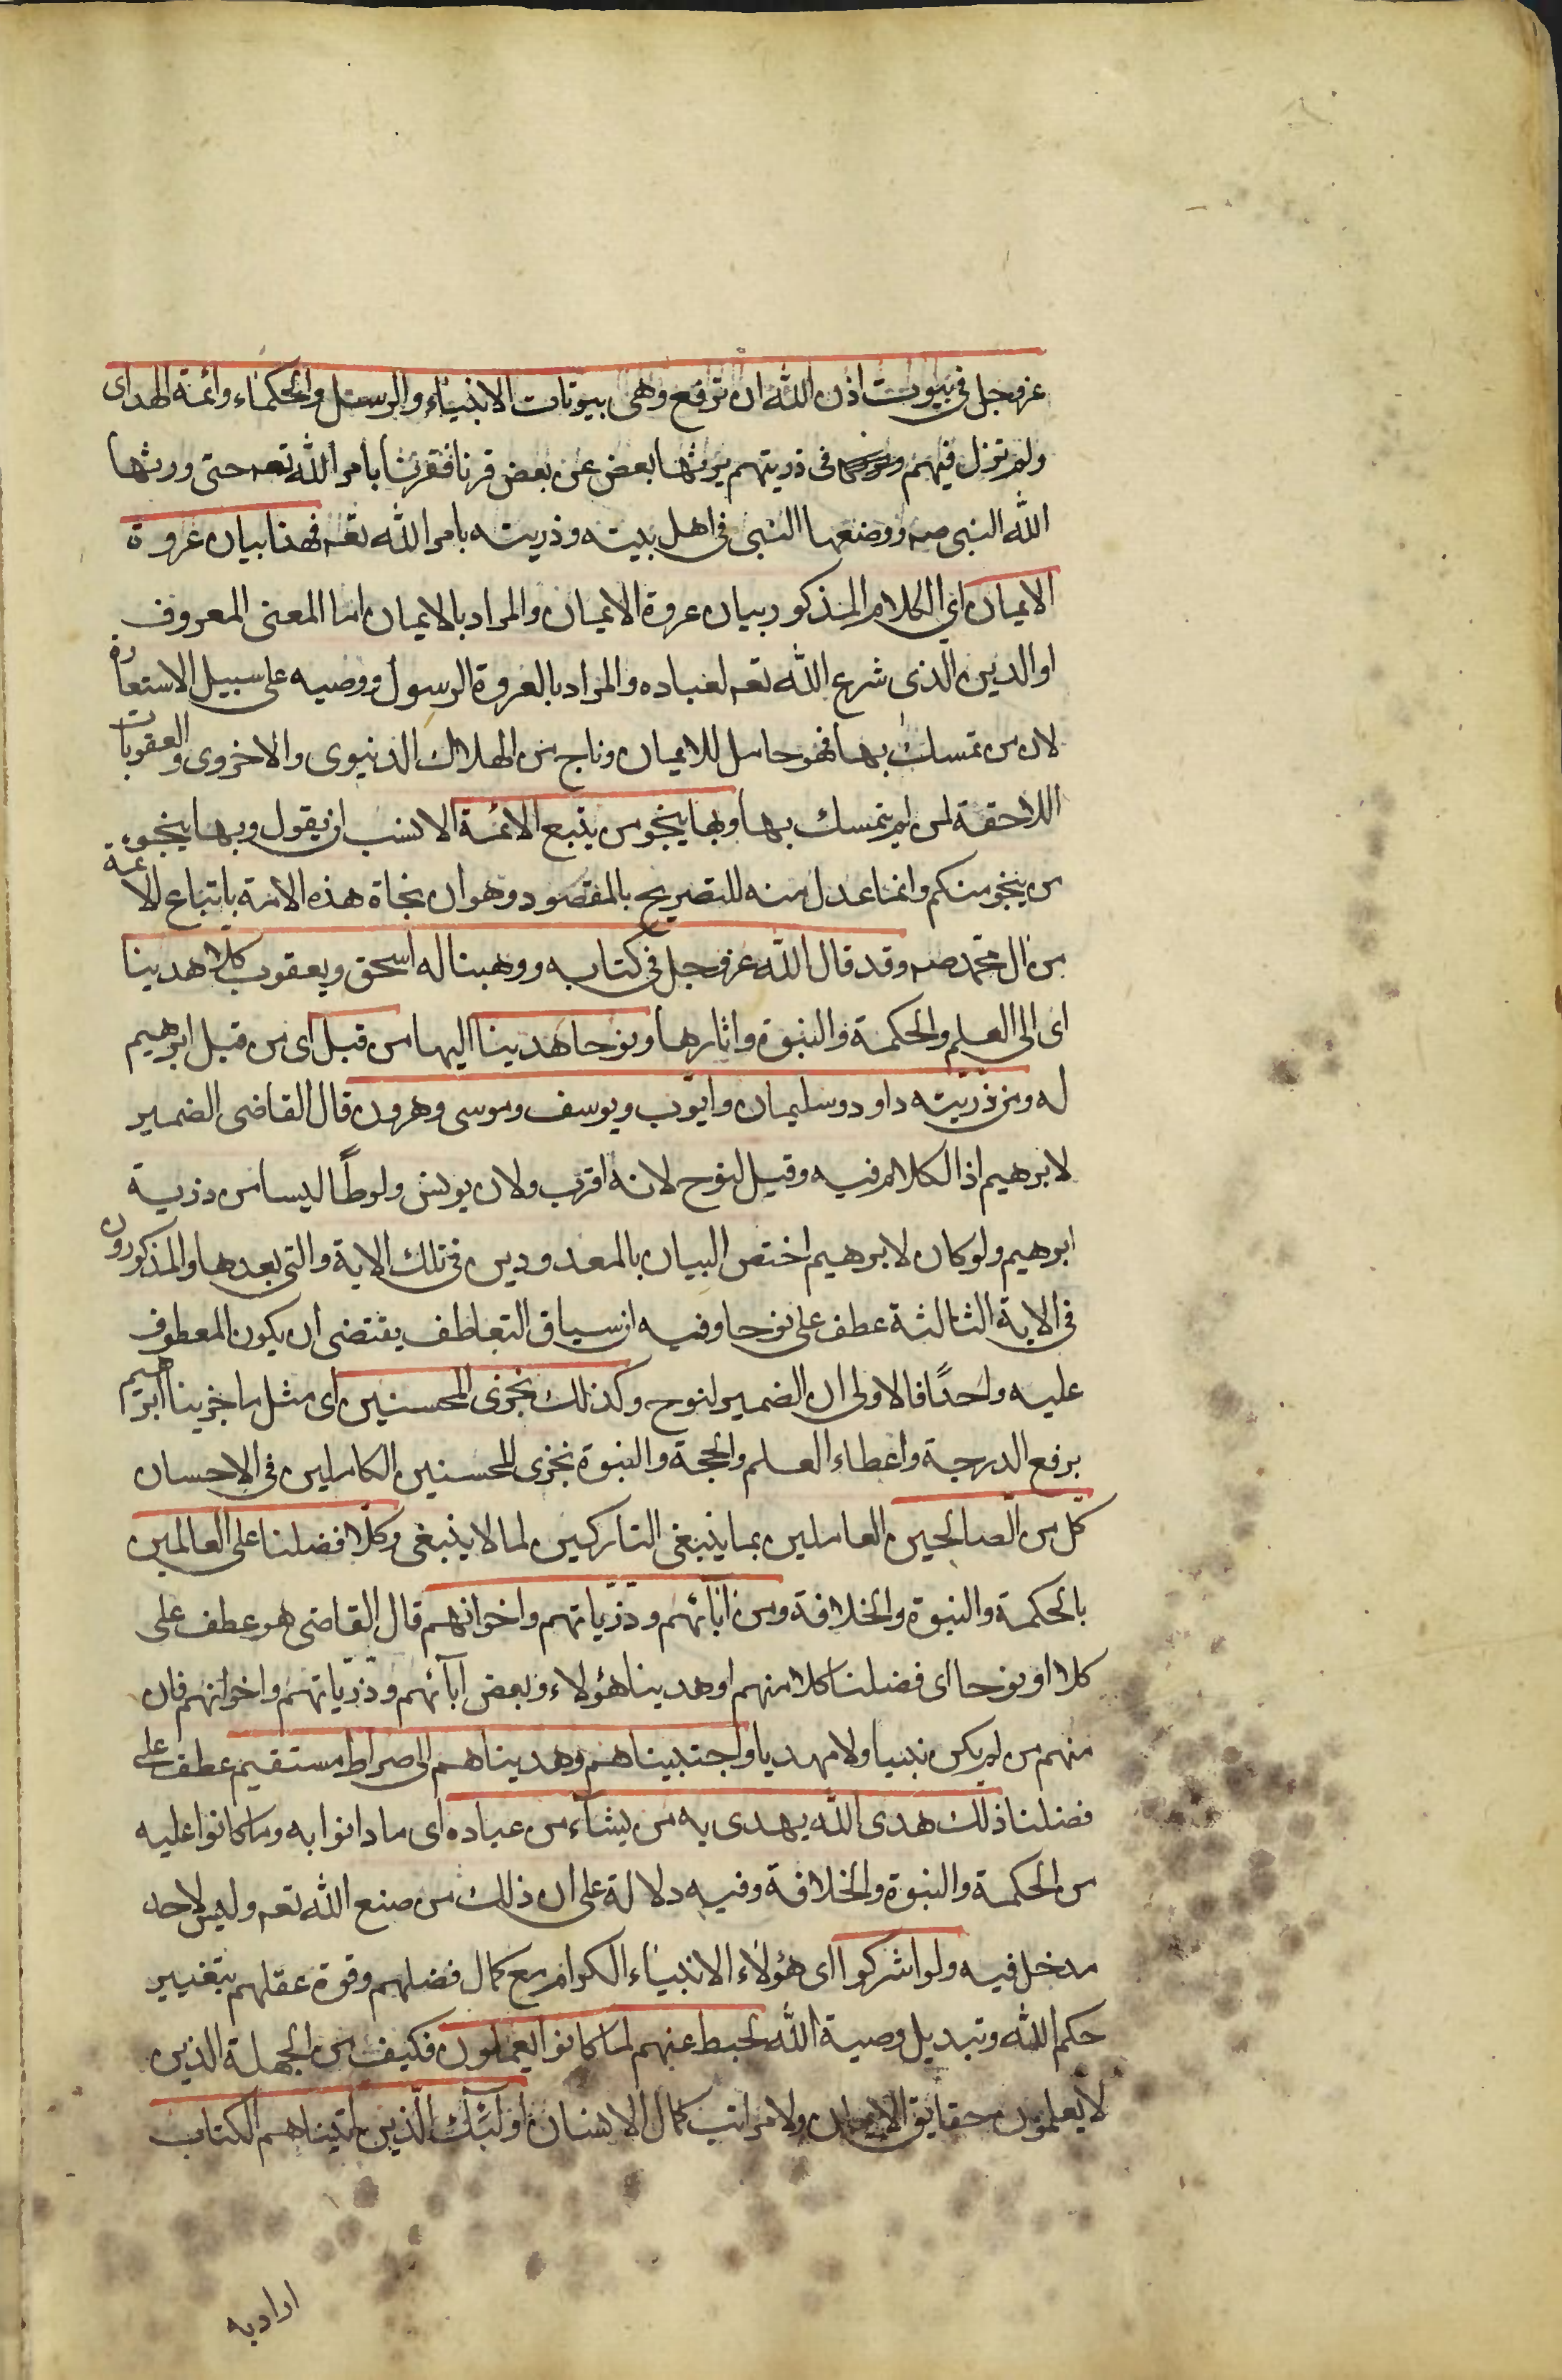 عز وجل فى بيوت اذن الله ان ترفع وهى بيوتات الانبياء والرسل والحكماء وائمة الهداى
ولم تزل فيهم فى ذريتهم يرثها بعض عن بعض قرنا فقرنا بامر الله تعه حتى ورثها
الله النبى صه ووضعها النبى فى اهل بيته وذريته بامر الله تعه فهذا بيان عروة
الايمان اي الكلام المذكور بيان عروة الايمان والمراد بالايمان اما المعنى المعروف
او الدين الذى شرع الله تعه لعباده والمراد بالعروة الرسول ووصيه على سبيل الاستعارة
لان من تمسك بها فهو حامل للايمان وناج من الهلاك الدنيوى والاخروى والعقوبات
اللاحقة لمن لم يتمسك بها وبها ينجو من يتبع الائمة الانسب ان يقول وبها ينجو
من ينجو منكم وانما عدل منه للتصريح بالمقصود وهو ان نجاة هذه الامة باتباع الائمة
من ال محمد صه وقد قال الله عز وجل فى كتابه ووهبنا له اسحق ويعقوب كلا هدينا
اى الى العلم والحكمة والنبوة واثارها ونوحا هدينا اليها من قبل اى من قبل ابرهيم
له ومن ذريته داود وسليمان وايوب ويوسف وموسى وهرون قال القاضى الضمير
لابرهيم اذ الكلام فيه وقيل لنوح لانه اقرب ولان يونس ولوطًا ليسا من ذرية
ابرهيم ولو كان لابرهيم اختص البيان بالمعدودين فى تلك الاية والتى بعدها والمذكورون
فى الاية الثالثة عطف على نوحا وفيه ان سياق التعاطف يقتضى ان يكون المعطوف
عليه واحدًا فالاولى ان الضمير لنوح وكذلك نجزى المحسنين اى مثل ما جزينا ابرهيم
برفع الدرجة واعطاء العلم والحجة والنبوة نجزى المحسنين الكاملين فى الاحسان
كل من الصالحين العاملين بما ينبغى التاركين لما لا ينبغى وكلا فضلنا على العالمين
بالحكمة والنبوة والخلافة ومن ابائهم وذرياتهم واخوانهم قال القاضى هو عطف على
كلا او نوحا اى فضلنا كلا منهم او هدينا هؤلاء وبعض آبائهم وذرياتهم واخوانهم فان
منهم من لم يكن نبيا ولا مهديا واجتبيناهم وهديناهم الى صراط مستقيم عطف على
فضلنا ذلك هدى الله يهدى به من يشآء من عباده اى ما دانوا به وما كانوا عليه
من الحكمة والنبوة والخلافة وفيه دلالة على ان ذلك من صنع الله تعه وليس لاحد
مدخل فيه ولو اشركوا اى هؤلاء الانبياء الكرام مع كمال فضلهم وقوة عقلهم بتغيير
حكم الله وتبديل وصية الله لحبط عنهم لما كانوا يعملون فكيف من الجهلة الذين
لا يعلمون حقايق الايمان ولا مراتب كمال الانسان اولئك الذين اتيناهم الكتاب
اراد به